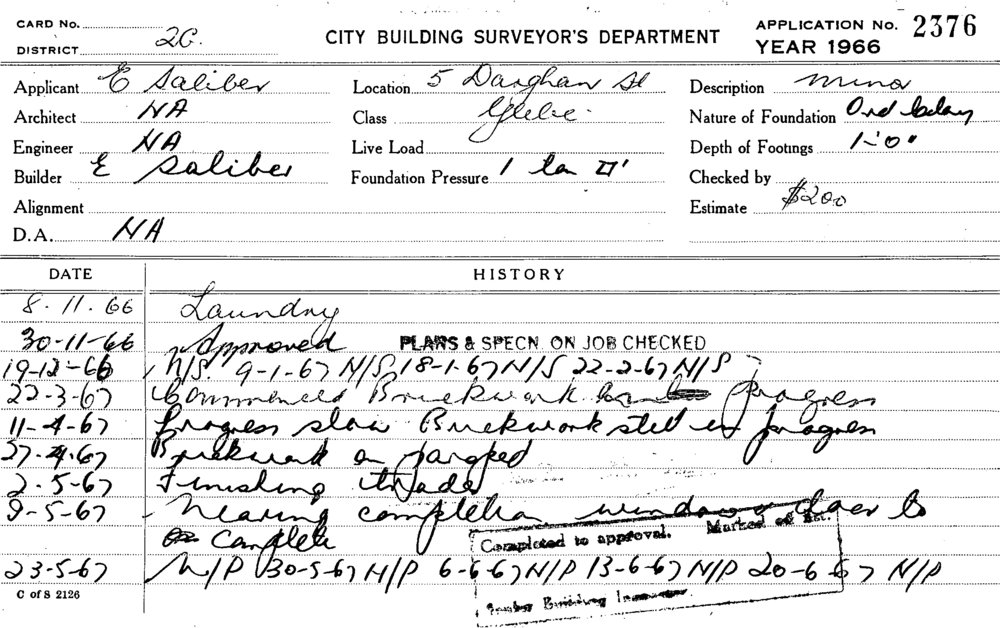 CARD No.
DISTRICT 2G.
CITY BUILDING SURVEYOR'S DEPARTMENT
APPLICATION No. 2376
YEAR 1966
Applicant E Saliber Location 5 Darghan St Description Minor
Architect NA Class Glebe. Nature of Foundation Ord
Engineer NA Live Load Depth of Footings 1'-0"
Builder E Saliber Foundation Pressure 1 ton □' Checked by
Alignment Estimate $200
D.A. NA
DATE HISTORY
8.11.66 Laundry
30-11-66 Approved PLANS & SPECN. ON JOB CHECKED
19-12-66 N/S. 9-1-67 N/S, 18-1-67 N/S 22-2-67 N/S
22-3-67 Commenced Brickwork progress
11-4-67 Progress slow Brickwork still in progress
27-4-67 Brickwork
2-5-67 Finishing
9-5-67 Nearing completion window & door to
complete
Completed to approval. Marked off
23-5-67 N/P 30-5-67 N/P 6-6-67 N/P 13-6-67 N/P 20-6-67 N/P
Building
C of S 2126